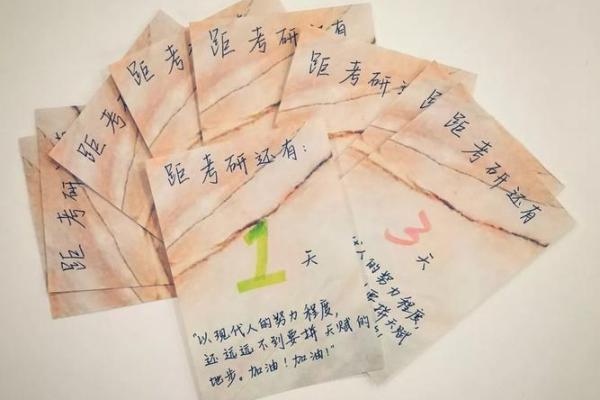 距考研
距考
距考研
距考研还有
距考研
距考研还有
距考研还有:
1
天
"以现代人的努力程度,
还远远不到要拼天赋的
地步。加油!加油!"
3
天
人的努力程度,
拼天赋